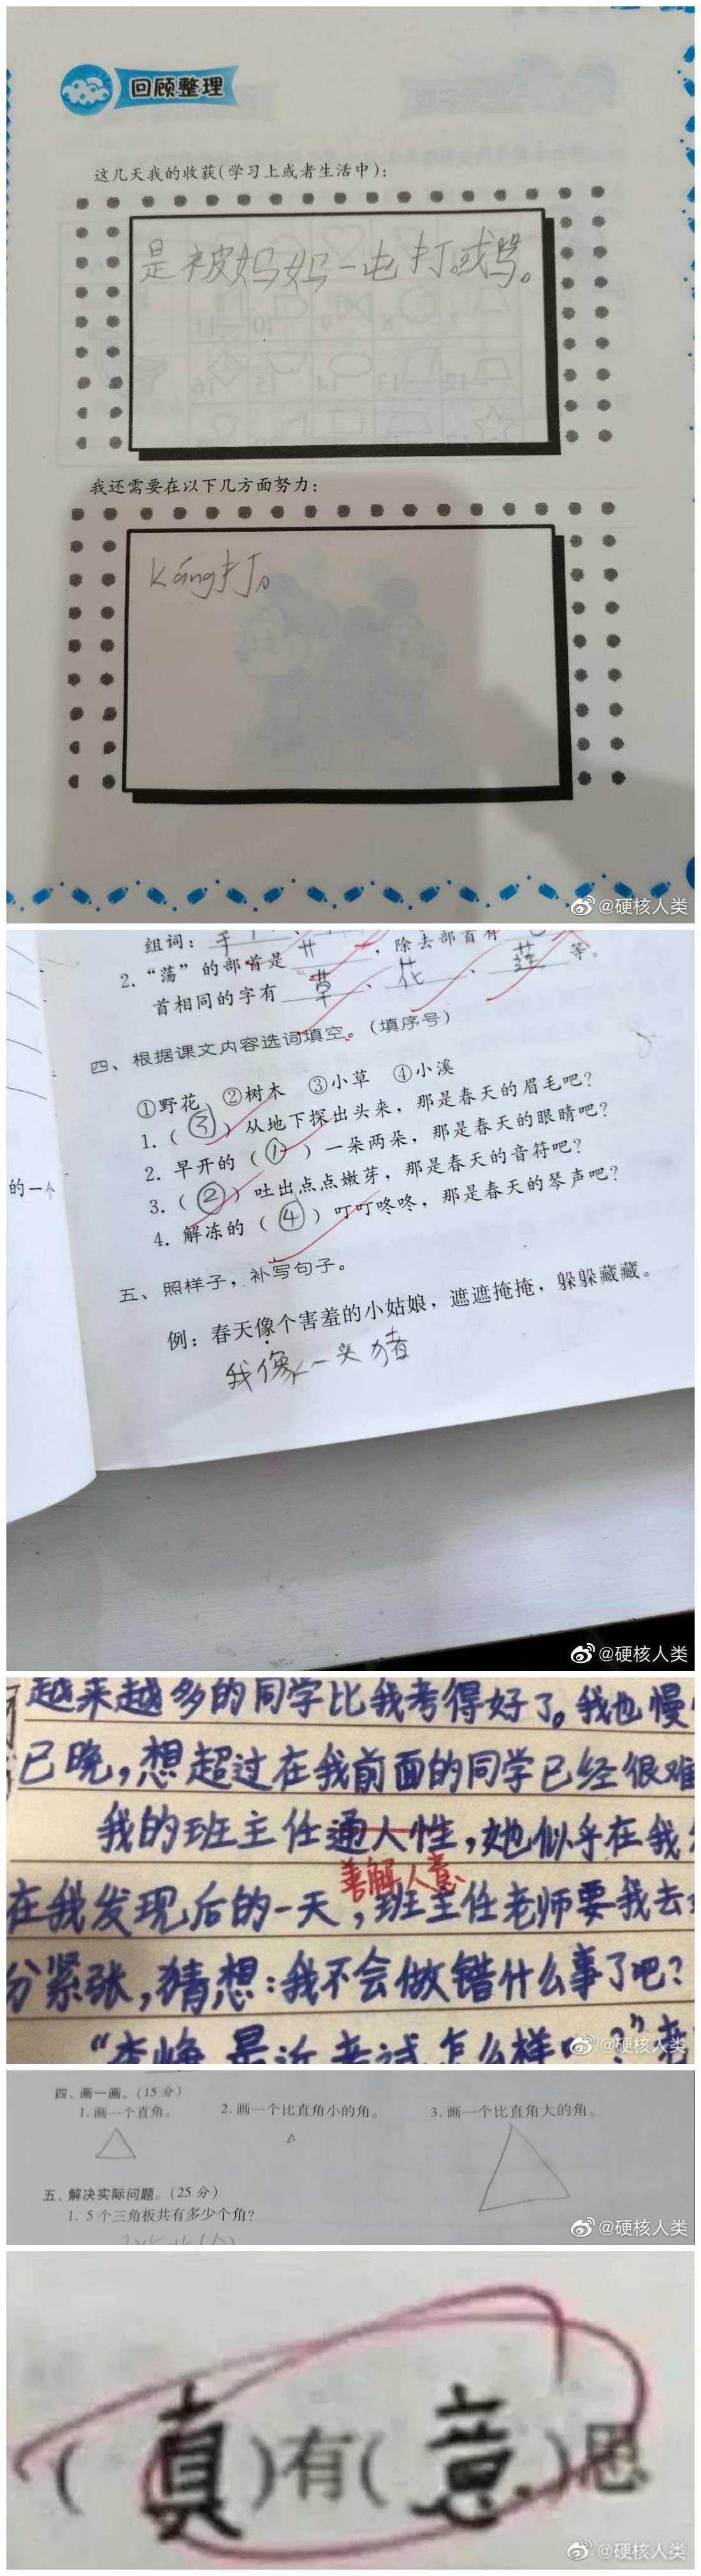 回顾整理
这几天我的收获(学习上或者生活中):
是被妈妈一屯打。或骂。
我还需要在以下几方面努力:
káng打。
@硬核人类
组词: 手
2. “荡”的部首是 艹 , 除去部首有
首相同的字有 草 、 花 、 莲 等。
四、根据课文内容选词填空。(填序号)
①野花 ②树木 ③小草 ④小溪
1. ( ③ ) 从地下探出头来, 那是春天的眉毛吧?
2. 早开的 ( ① ) 一朵两朵, 那是春天的眼睛吧?
的一个
3. ( ② ) 吐出点点嫩芽, 那是春天的音符吧?
4. 解冻的 ( ④ ) 叮叮咚咚, 那是春天的琴声吧?
五、照样子, 补写句子。
例: 春天像个害羞的小姑娘, 遮遮掩掩, 躲躲藏藏。
我像一头猪
@硬核人类
越来越多的同学比我考得好了。我也慢
已晚,想超过在我前面的同学已经很难
我的班主任通人性,她似乎在我
善解人意
在我发现后的一天,班主任老师要我去
分紧张,猜想:我不会做错什么事了吧?
最近考试怎么样
@硬核人类
四、画一画。(15 分)
1. 画一个直角。 2. 画一个比直角小的角。 3. 画一个比直角大的角。
五、解决实际问题。(25 分)
1. 5 个三角板共有多少个角?
@硬核人类
( 真 )有( 意 )思
@硬核人类